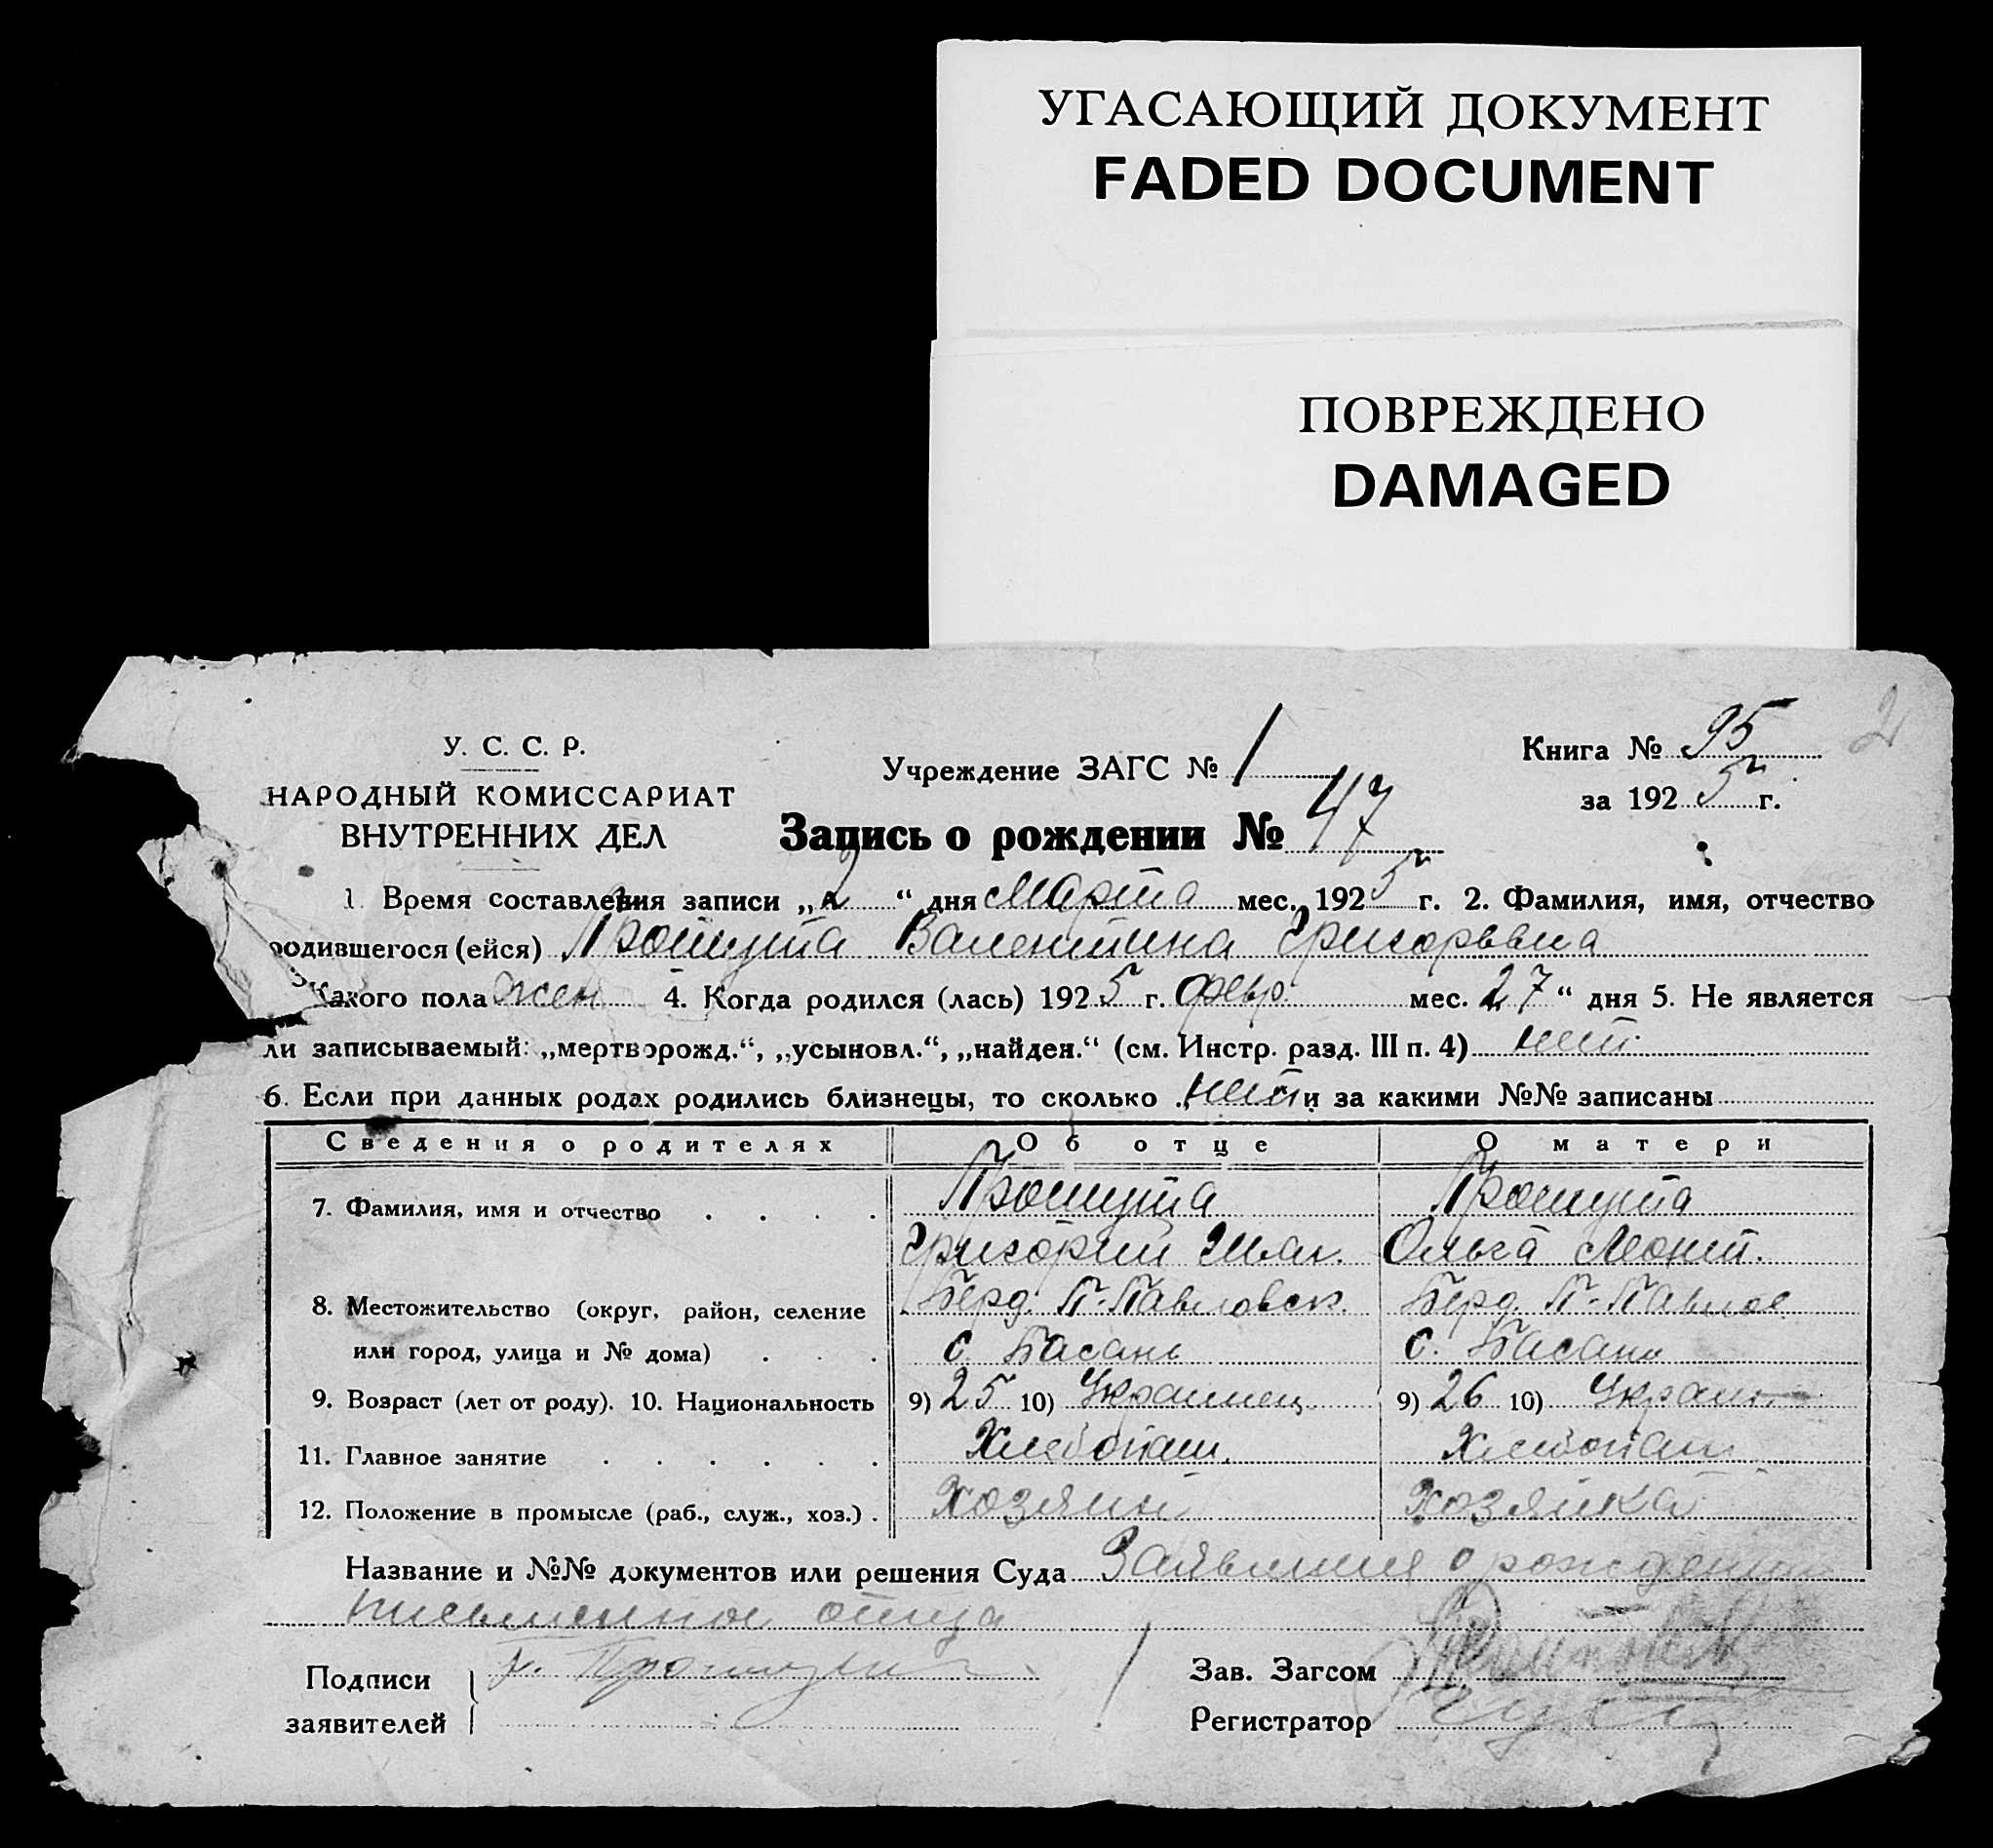 УГАСАЮЩИЙ ДОКУМЕНТ
FADED DOCUMENT
ПОВРЕЖДЕНО
DAMAGED
2
У. С. С. Р.
НАРОДНЫЙ КОМИССАРИАТ
ВНУТРЕННИХ ДЕЛ
Учреждение ЗАГС № 1
Книга № 95
за 1925 г.
Запись о рождении № 47
1. Время составления записи „2“ дня Марта мес. 1925 г. 2. Фамилия, имя, отчество
родившегося (ейся) Прошута Валентина Григорьвна
Какого пола жен 4. Когда родился (лась) 1925 г. февр. мес. 27“ дня 5. Не является
ли записываемый: „мертворожд.“, „усыновл.“, „найден.“ (см. Инстр. разд. III п. 4) нет
6. Если при данных родах родились близнецы, то сколько „нет и за какими №№ записаны
Сведения о родителях Об отце О матери
7. Фамилия, имя и отчество . . . . Прошута Прошута
Григорий Ольга Леонт.
8. Местожительство (округ, район, селение Берд. П-Павловск. Берд. П-Павлов
или город, улица и № дома) . . . с. Басань с. Басань
9. Возраст (лет от роду). 10. Национальность 9) 25 10) Украинец 9) 26 10) Украин.
11. Главное занятие . . . . . . Хлебопаш. Хлебопаш
12. Положение в промысле (раб., служ., хоз.) . Хозяин Хозяйка
Название и №№ документов или решения Суда Заявление о рождении
письменное отца
Подписи Г. Прошута Зав. Загсом
заявителей Регистратор